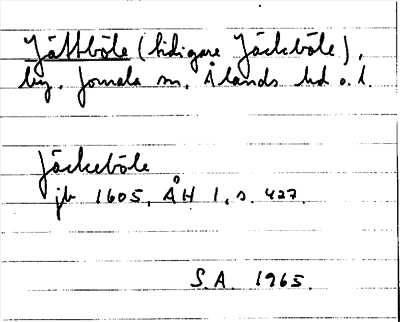 Jättböle (tidigare Jäckböle),
by, Jomala sn, Ålands hd o. l.
Jäckeböle
jb 1605, ÅH 1, s. 427.
S.A. 1965.